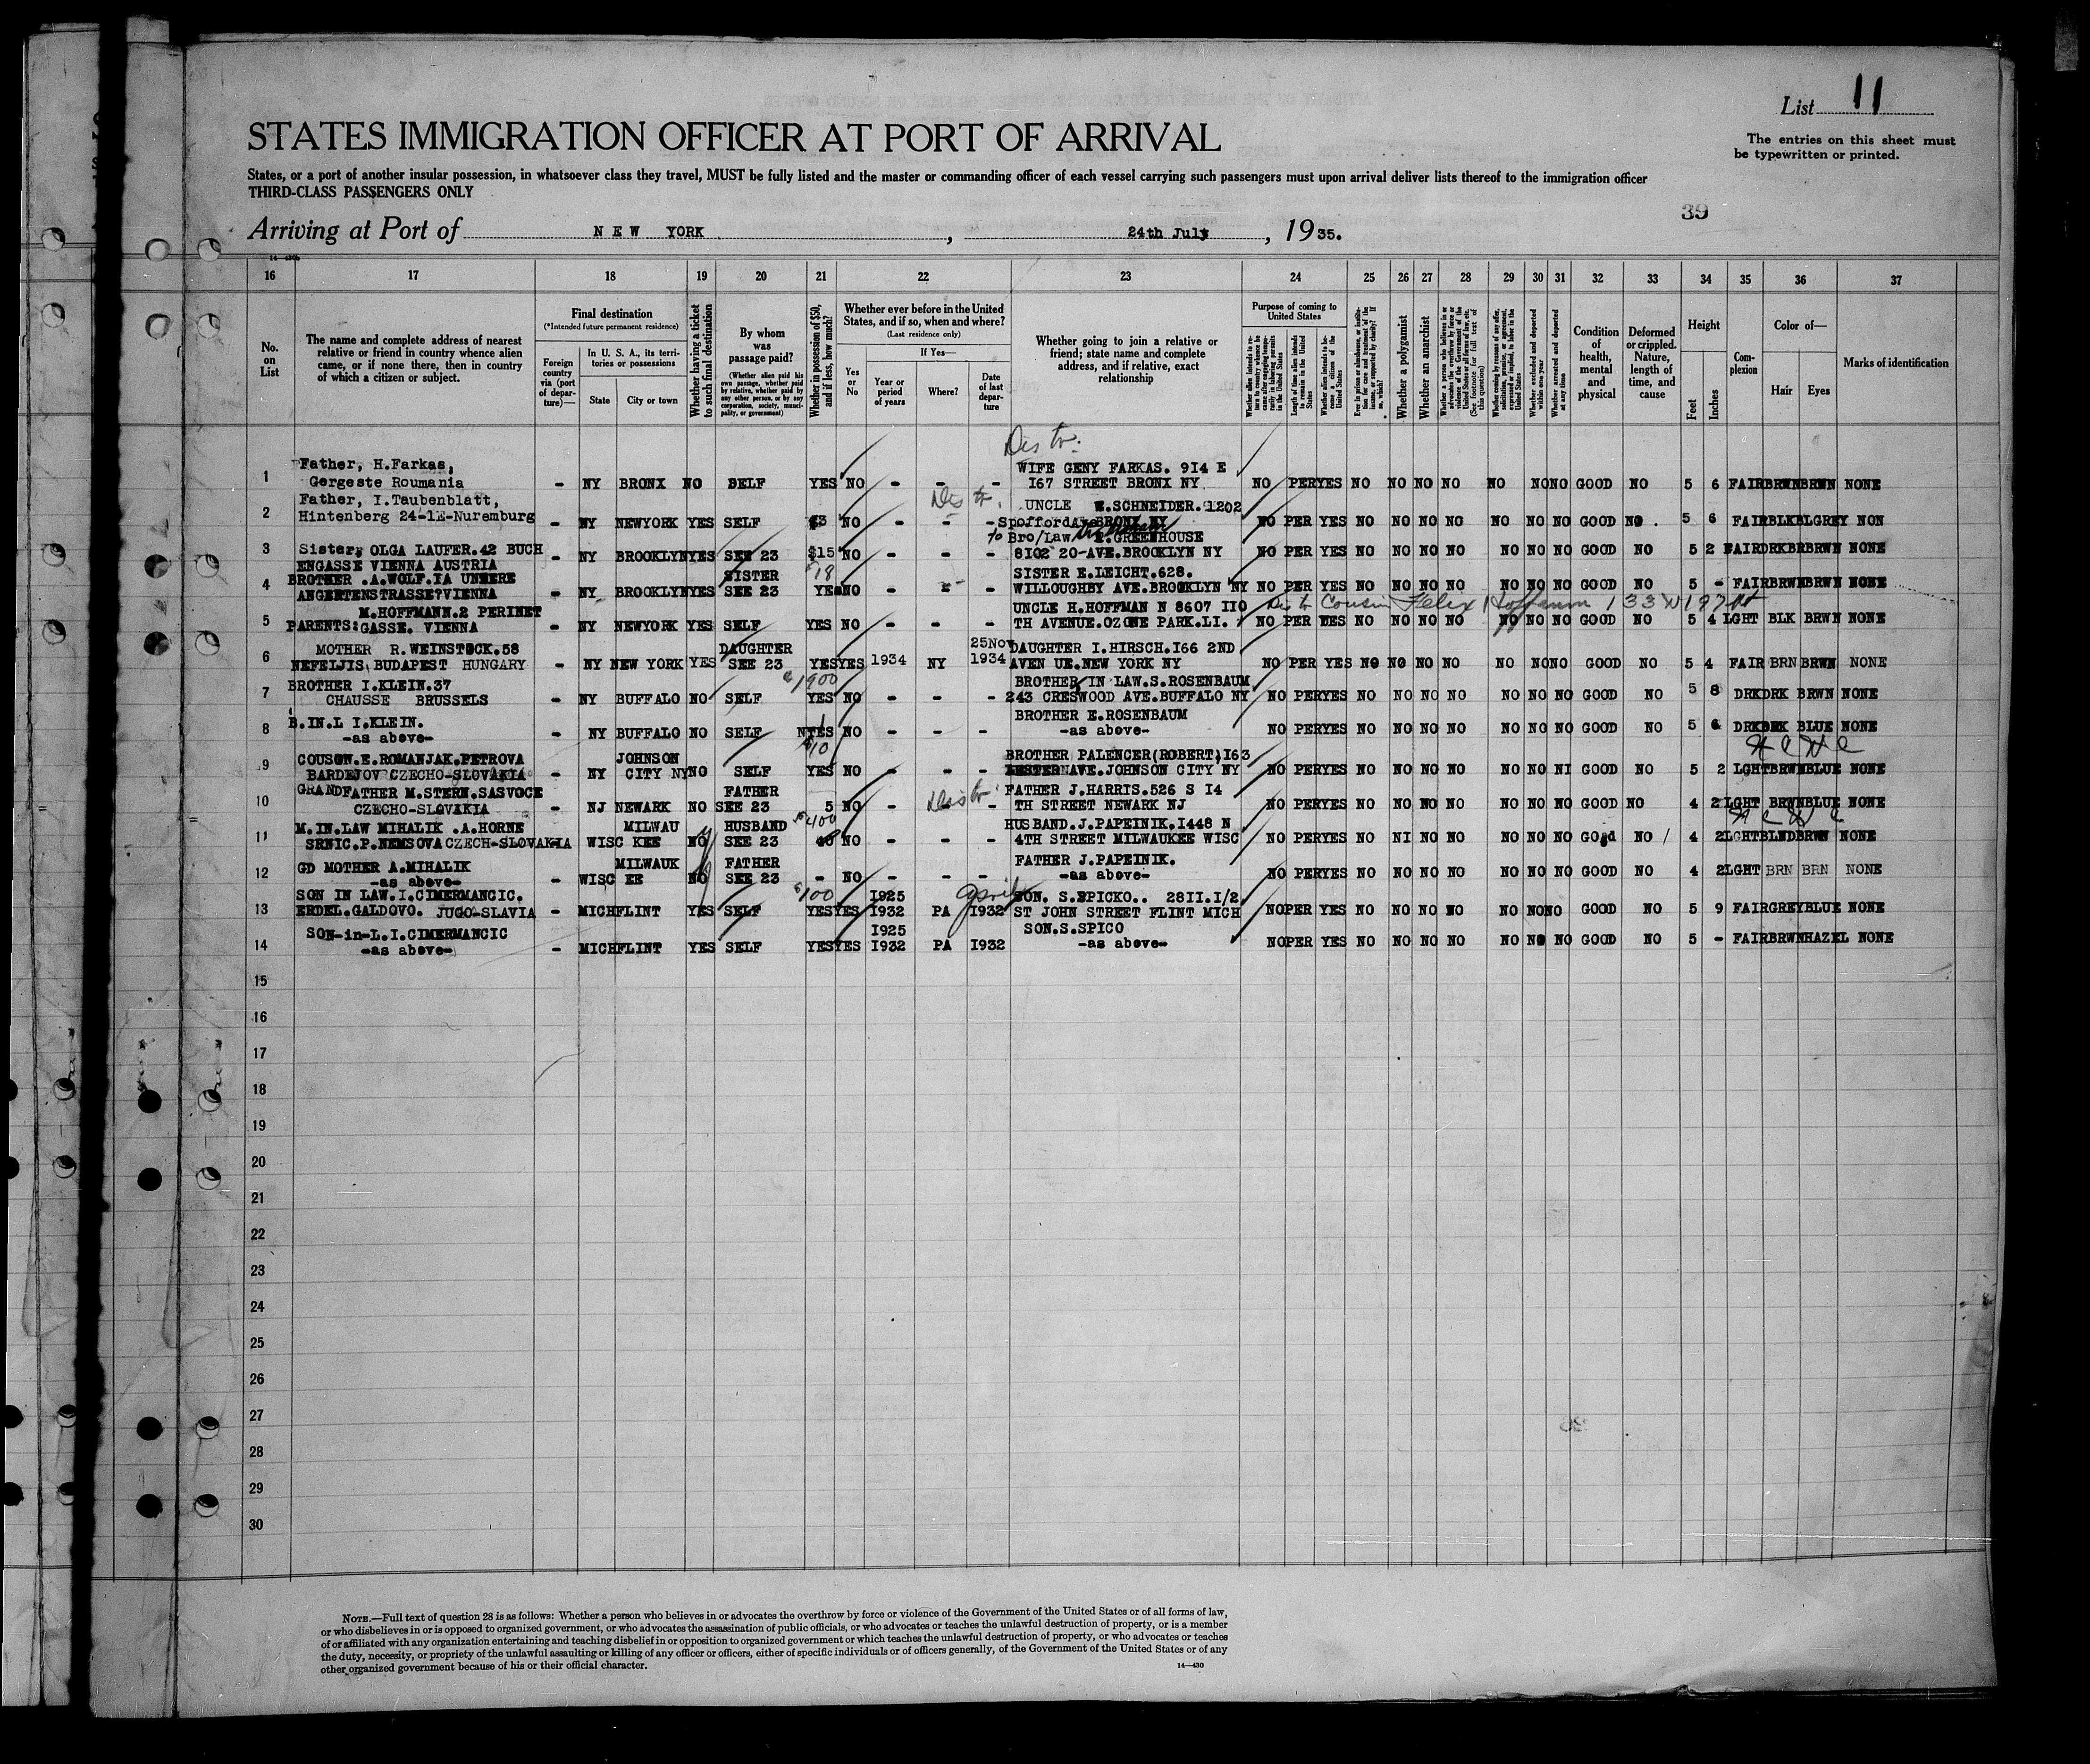 List 11
STATES IMMIGRATION OFFICER AT PORT OF ARRIVAL
The entries on this sheet must
be typewritten or printed.
States, or a port of another insular possession, in whatsoever class they travel, MUST be fully listed and the master or commanding officer of each vessel carrying such passengers must upon arrival deliver lists thereof to the immigration officer
THIRD-CLASS PASSENGERS ONLY
39
Arriving at Port of NEW YORK, 24th July, 1935.
16 17 18 19 20 21 22 23 24 25 26 27 28 29 30 31 32 33 34 35 36 37
No. on List
The name and complete address of nearest
relative or friend in country whence alien
came, or if none there, then in country
of which a citizen or subject.
Final destination
(*Intended future permanent residence)
Foreign country via (port of departure)—
In U. S. A., its territories or possessions
State City or town
Whether having a ticket to such final destination
By whom was passage paid?
(Whether alien paid his own passage, whether paid by relative, whether paid by any other person, or by any corporation, society, municipality, or government)
Whether in possession of $50, and if less, how much?
Whether ever before in the United
States, and if so, when and where?
(Last residence only)
Yes or No
If Yes—
Year or period of years
Where?
Date of last departure
Whether going to join a relative or
friend; state name and complete
address, and if relative, exact
relationship
Purpose of coming to United States
Length of time alien intends to remain in the United States
Whether a polygamist
Whether an anarchist
Condition of health, mental and physical
Deformed or crippled. Nature, length of time, and cause
Height
Feet Inches
Complexion
Color of—
Hair Eyes
Marks of identification
1 Father, H.Farkas, Gergeste Roumania - NY BRONX NO SELF YES NO - - - WIFE GENY FARKAS. 914 E 167 STREET BRONX NY NO PER YES NO NO NO NO NO NO NO GOOD NO 5 6 FAIR BRWN BRWN NONE
2 Father, I.Taubenblatt, Hintenberg 24-1E-Nuremburg - NY NEWYORK YES SELF NO - - - UNCLE SCHNEIDER. 1202 Spofford Ave BRONX NY NO PER YES NO NO NO NO NO NO NO GOOD NO . 5 6 FAIR BLK BLGREY NON
3 Sister, OLGA LAUFER.42 BUCH ENGASSE VIENNA AUSTRIA - NY BROOKLYN YES SEE 23 $15 NO - - - to Bro/Law GREENHOUSE 8102 20-AVE.BROOKLYN NY NO PER YES NO NO NO NO NO NO NO GOOD NO 5 2 FAIR DRKBR BRWN NONE
4 BROTHER .A.WOLF.IA UNHERE ANGERTENSTRASSE?VIENNA - NY BROOKLYN YES SISTER SEE 23 $18 NO - - SISTER E.LEICHT.628. WILLOUGHBY AVE.BROOKLYN NY NO PER YES NO NO NO NO NO NO NO GOOD NO 5 - FAIR BRWN BRWN NONE
5 PARENTS: M.HOFFMANN.2 PERINET GASSE. VIENNA - NY NEWYORK YES SELF YES NO - - - UNCLE H.HOFFMAN N 8607 110 TH AVENUE.OZONE PARK.LI. NO PER NO NO NO NO NO NO NO GOOD NO 5 4 LGHT BLK BRWN NONE
Dis to Cousin Felix Hoffmann
6 MOTHER R.WEINSTOCK.58 NEFELJIS BUDAPEST HUNGARY - NY NEW YORK YES DAUGHTER SEE 23 YES YES 1934 NY 25Nov 1934 DAUGHTER I.HIRSCH.166 2ND AVEN UE.NEW YORK NY NO PER YES NO NO NO NO NO NO NO GOOD NO 5 4 FAIR BRN BRWN NONE
7 BROTHER I.KLEIN.37 CHAUSSE BRUSSELS - NY BUFFALO NO SELF $1900 YES NO - BROTHER IN LAW.S.ROSENBAUM 243 CRESWOOD AVE.BUFFALO NY NO PER YES NO NO NO NO NO NO NO GOOD NO 5 8 DRK DRK BRWN NONE
8 B.IN.L I.KLEIN. -as above- - NY BUFFALO NO SELF NO - - - BROTHER E.ROSENBAUM -as above- NO PER YES NO NO NO NO NO NO NO GOOD NO 5 DRK BLUE NONE
9 COUSON.E.ROMANJAK.PETROVA BARDEJOV CZECHO-SLOVAKIA - NY JOHNSON CITY NY NO SELF $10 YES NO - - - BROTHER PALENCER(ROBERT)163 LESTER AVE.JOHNSON CITY NY NO PER YES NO NO NO NO NO NO NI GOOD NO 5 2 LGHT BRWN BLUE NONE
10 GRANDFATHER M.STERN.SASVOCE CZECHO-SLOVAKIA - NJ NEWARK NO FATHER SEE 23 5 NO - - FATHER J.HARRIS.526 S 14 TH STREET NEWARK NJ NO PER YES NO NO NO NO NO NO NO GOOD NO 4 2 LGHT BRWN BLUE NONE
11 M.IN.LAW MIHALIK .A.HORNE SRNIC.P.NEMSOVA CZECH-SLOVAKIA WISC MILWAU KEE NO HUSBAND SEE 23 $400 NO - - - HUSBAND.J.PAPEINIK.1448 N 4TH STREET MILWAUKEE WISC NO PER YES NO NI NO NO NO NO NO GOod NO 4 2 LGHT BLND BRWN NONE
12 GD MOTHER A.MIHALIK -as above- - WISC MILWAUK EE NO FATHER SEE 23 - NO - - - FATHER J.PAPEINIK. -as above- NO PER YES NO NO NO NO NO NO NO GOOD NO 4 2 LGHT BRN BRN NONE
13 SON IN LAW.I.CIMERMANCIC. ERDEL.GALDOVO. JUGO-SLAVIA - MICH FLINT YES SELF $100 YES YES 1925 1932 PA 1932 SON. S.SPICKO.. 2811.1/2 ST JOHN STREET FLINT MICH NO PER YES NO NO NO NO NO NO NO GOOD NO 5 9 FAIR GREY BLUE NONE
14 SON-in-L.I.CIMERMANCIC -as above- - MICH FLINT YES SELF YES YES 1925 1932 PA 1932 SON.S.SPICO -as above- NO PER YES NO NO NO NO NO NO NO GOOD NO 5 - FAIR BRWN HAZEL NONE
15
16
17
18
19
20
21
22
23
24
25
26
27
28
29
30
NOTE.—Full text of question 28 is as follows: Whether a person who believes in or advocates the overthrow by force or violence of the Government of the United States or of all forms of law,
or who disbelieves in or is opposed to organized government, or who advocates the assassination of public officials, or who advocates or teaches the unlawful destruction of property, or is a member
of or affiliated with any organization entertaining and teaching disbelief in or opposition to organized government or which teaches the unlawful destruction of property, or who advocates or teaches
the duty, necessity, or propriety of the unlawful assaulting or killing of any officer or officers, either of specific individuals or of officers generally, of the Government of the United States or of any
other organized government because of his or their official character.
14—430